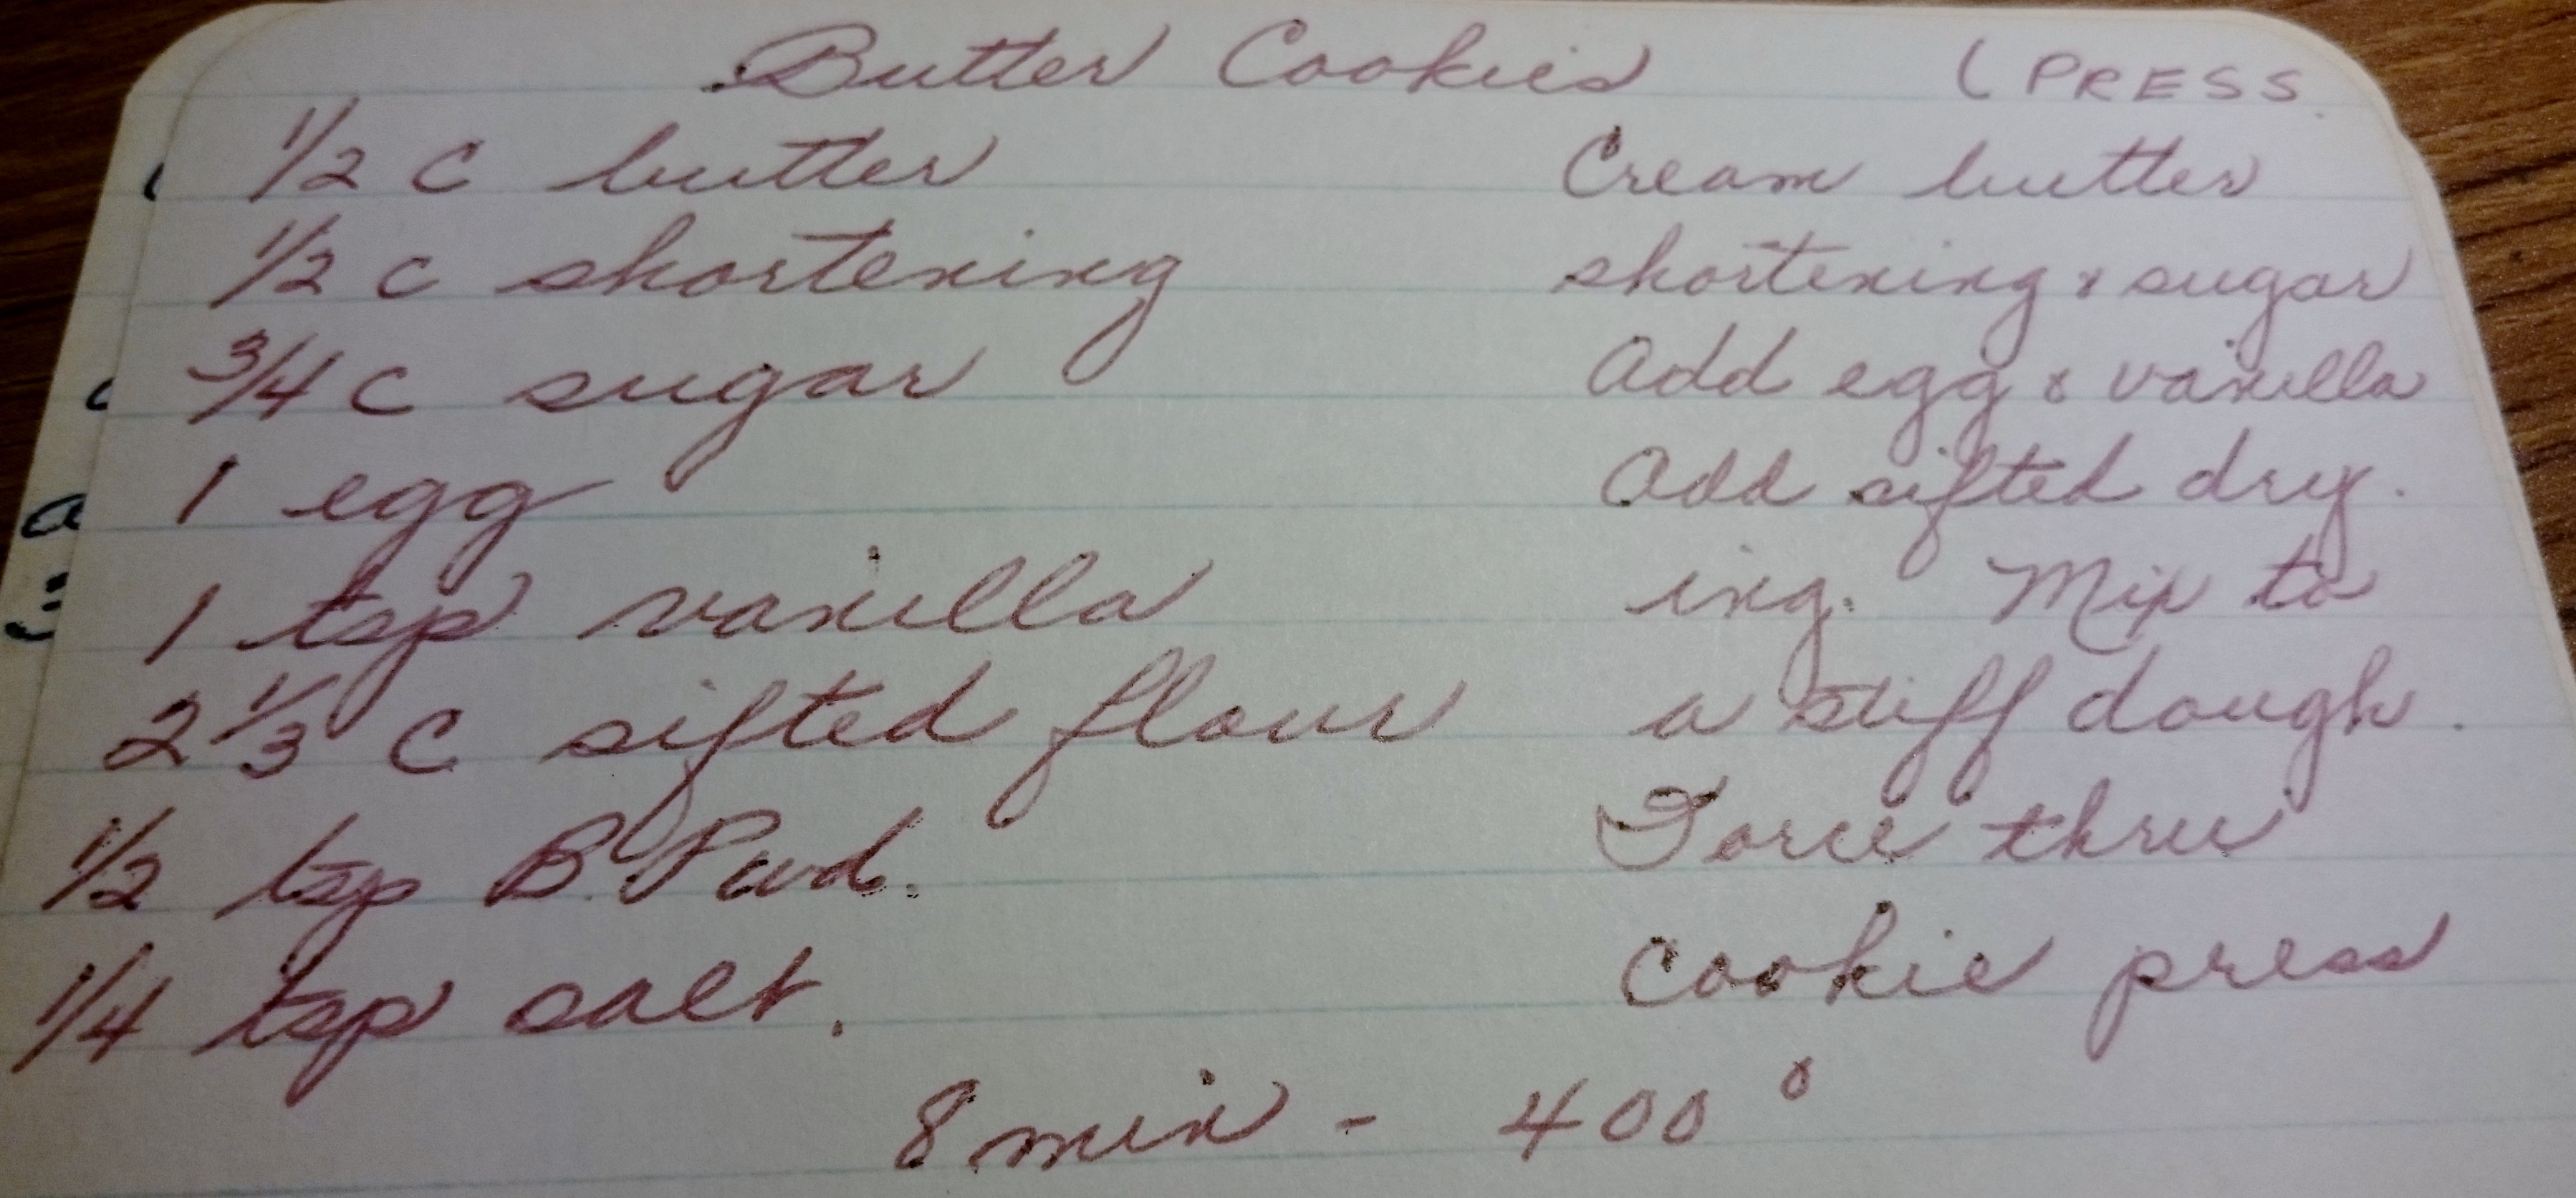 Butter Cookies (PRESS
1/2 C butter
1/2 C shortening
3/4 C sugar
1 egg
1 tsp vanilla
2 1/3 C sifted flour
1/2 tsp B. Pwd.
1/4 tsp salt.
Cream butter
shortening & sugar
Add egg & vanilla
Add sifted dry.
ing. Mix to
a stiff dough.
Force thru
Cookie press
8 min - 400°